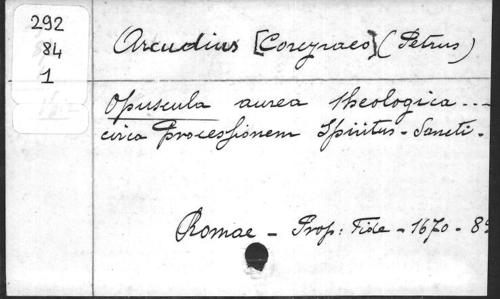 292
84
1
Arcudius [Corcyraeo] (Petrus)
Opuscula aurea theologica...
circa Processionem Spiritus-Sancti-
Romae - Prop: Fide - 1670 - 8º